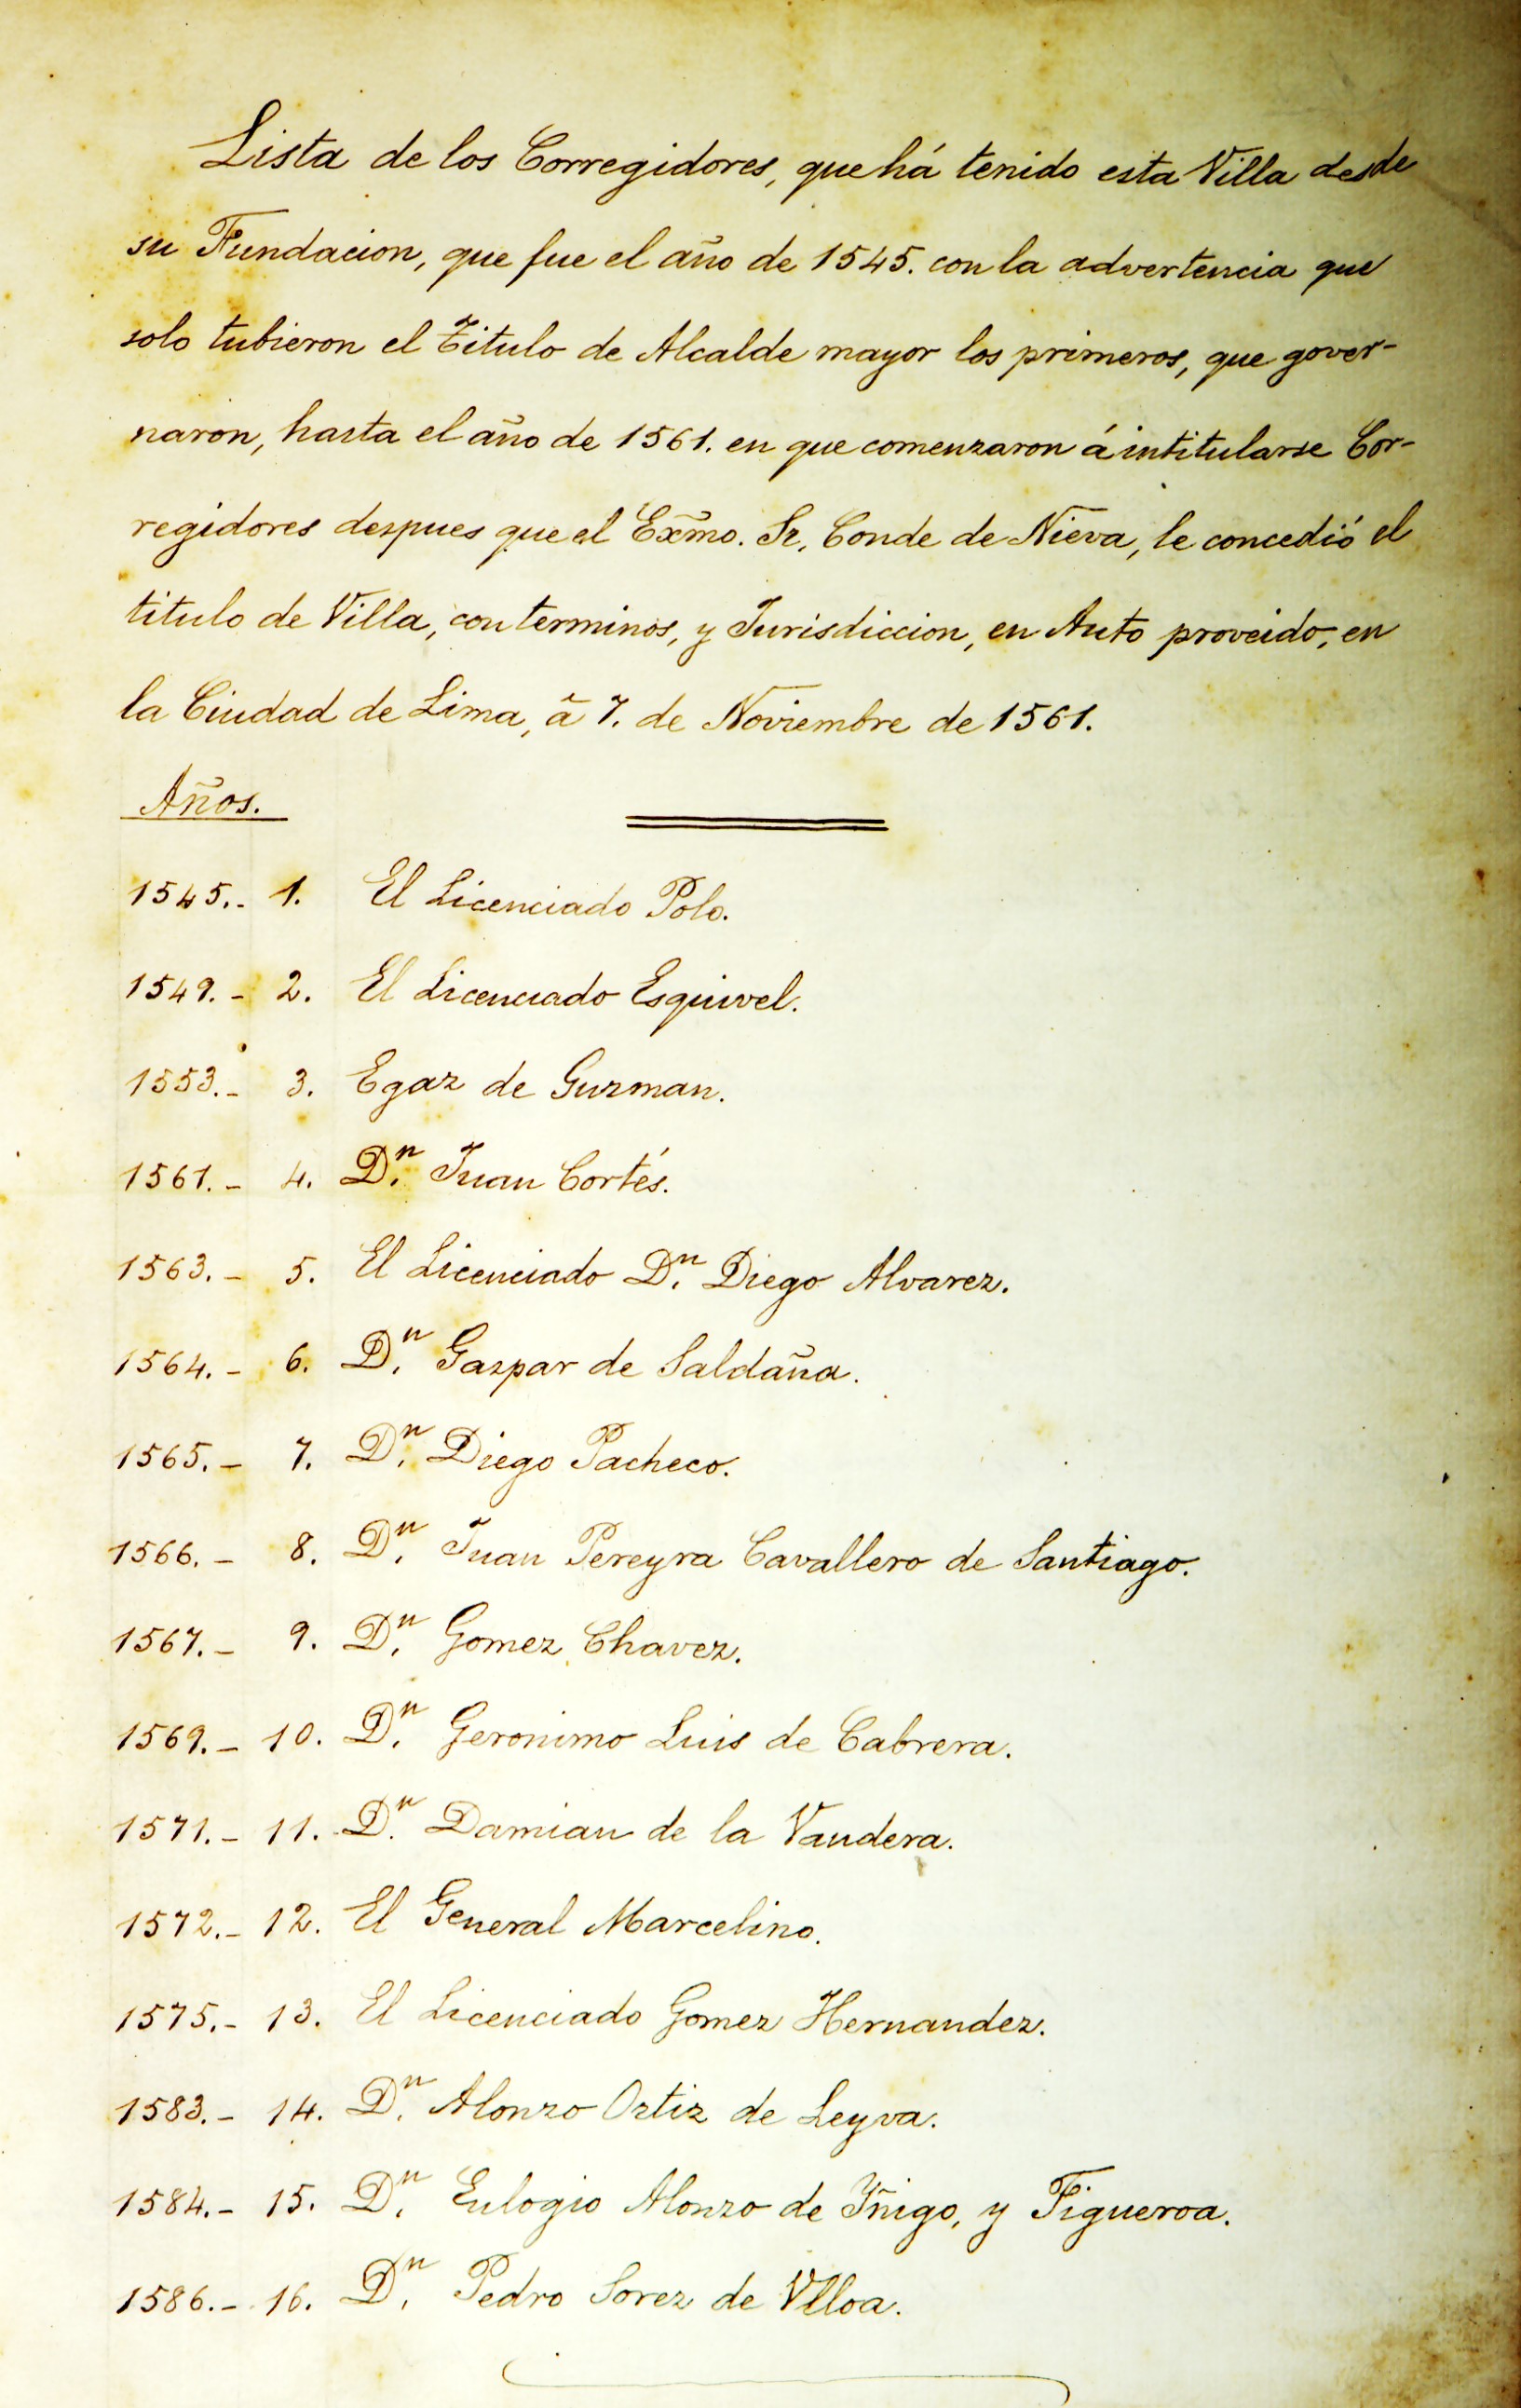 Lista de los Corregidores, que há tenido esta Villa desde
su Fundacion, que fue el año de 1545. con la advertencia que
solo tubieron el Titulo de Alcalde mayor los primeros, que gover-
naron, hasta el año de 1561. en que comenzaron á intitularse Cor-
regidores despues que el Exm̃o. Sr. Conde de Nieva, le concedió el
titulo de Villa, con terminos, y Jurisdiccion, en Auto proveido, en
la Ciudad de Lima, ã 7. de Noviembre de 1561.
Años.
1545.- 1. El Licenciado Polo.
1549.- 2. El Licenciado Esquivel.
1553.- 3. Egaz de Guzman.
1561.- 4. Dⁿ. Juan Cortés.
1563.- 5. El Licenciado Dⁿ. Diego Alvarez.
1564.- 6. Dⁿ. Gaspar de Saldaña.
1565.- 7. Dⁿ. Diego Pacheco.
1566.- 8. Dⁿ. Juan Pereyra Cavallero de Santiago.
1567.- 9. Dⁿ. Gomez Chavez.
1569.- 10. Dⁿ. Geronimo Luis de Cabrera.
1571.- 11. Dⁿ. Damian de la Vandera.
1572.- 12. El General Marcelino.
1575.- 13. El Licenciado Gomez Hernandez.
1583.- 14. Dⁿ. Alonzo Ortiz de Leyva.
1584.- 15. Dⁿ. Eulogio Alonzo de Yñigo, y Figueroa.
1586.- 16. Dⁿ. Pedro Sorez de Vlloa.